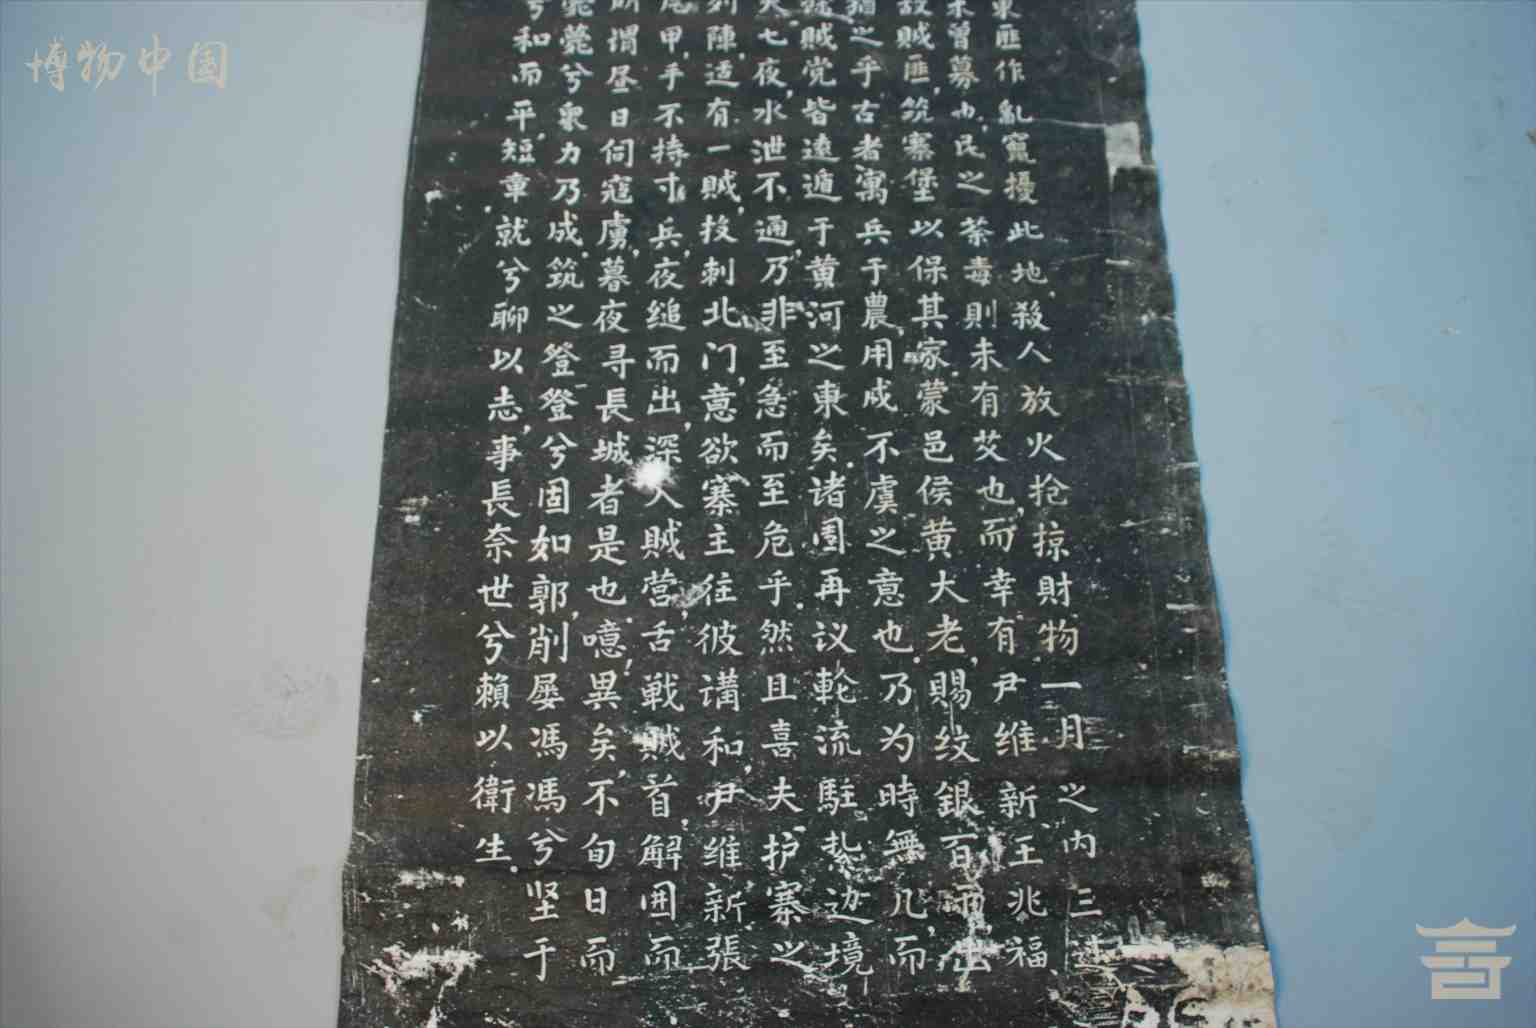 博物中国
東匪作乱竄擾此地,殺人放火抢掠財物一月之内三
未曾募也,民之荼毒則未有艾也,而幸有尹维新王兆福
賊匪,筑寨堡以保其家蒙邑侯黄大老,賜纹銀百兩,出
之乎,古者寓兵于農,用戒不虞之意也.乃为時無几,而
賊党皆遠遁于黄河之東矣.诸围再议輪流駐紮边境
七夜,水泄不通,乃非至急而至危乎.然且喜夫护寨之
列陣,适有一賊,投刺北门,意欲寨主往彼講和,尹维新張
尾甲,手不持寸兵,夜缒而出,深入賊营,舌戦賊首,解囲而
所谓昼日伺寇虜,暮夜寻長城者是也.噫,異矣,不旬日而
薨薨兮衆力乃成.筑之登登兮固如郭,削屡馮馮兮坚于
兮和而平,短章就兮聊以志,事長奈世兮賴以衛生.